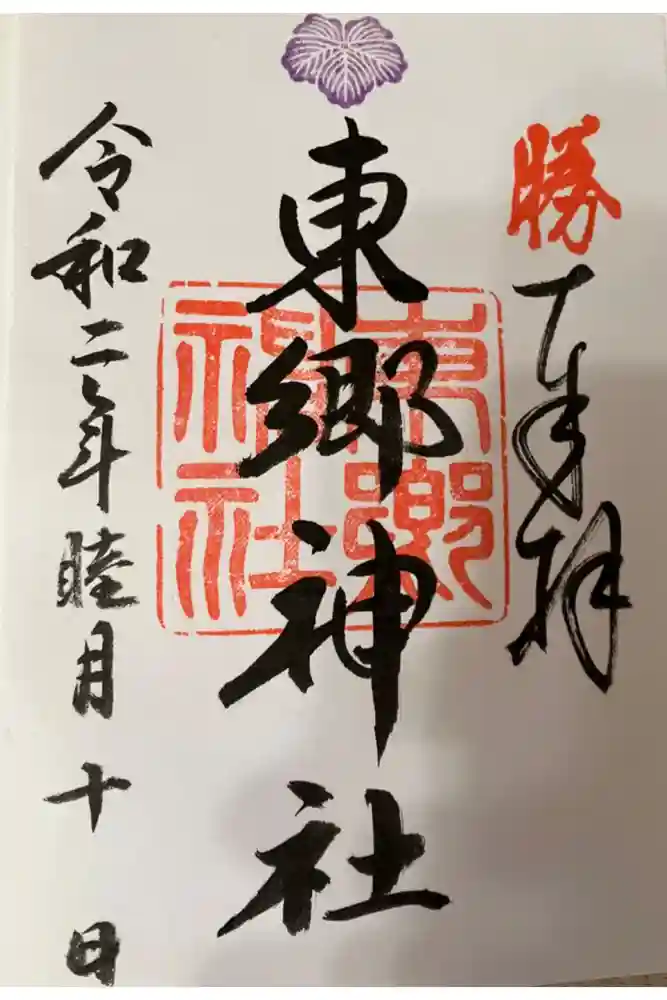 勝
奉拝
東郷神社
東郷神社
令和二年睦月十日